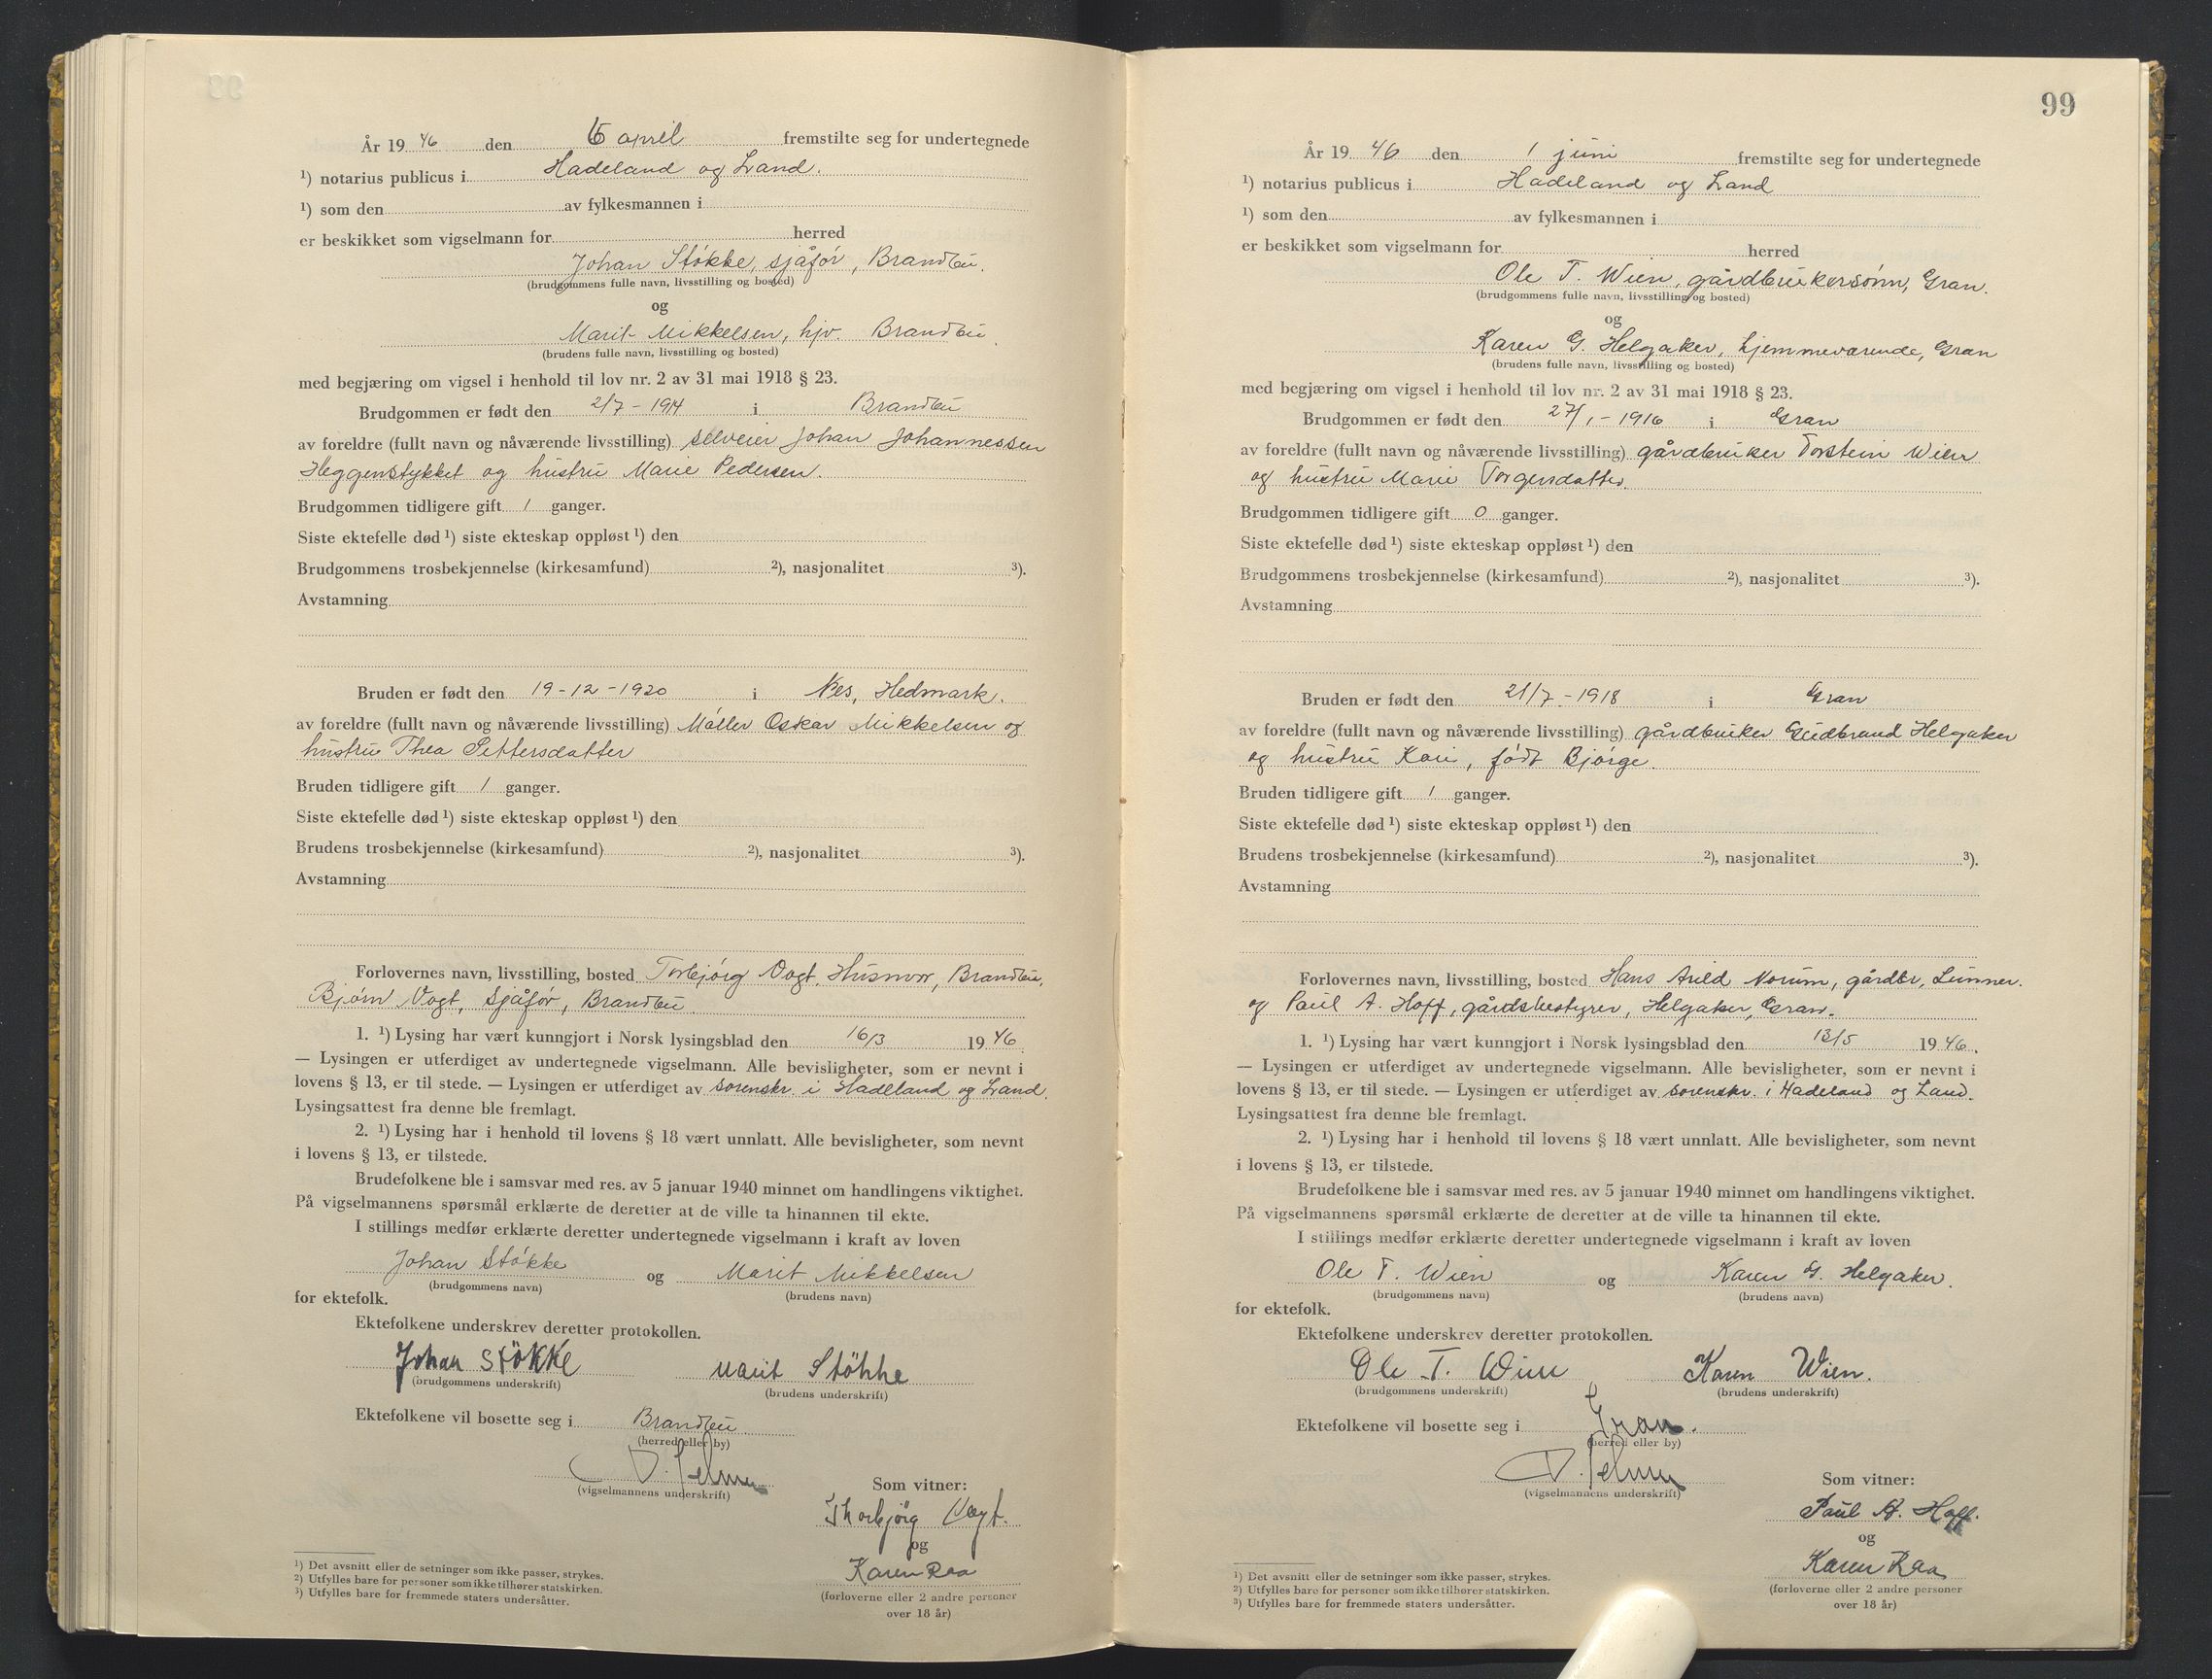 År 19 46 den 6 april fremstilte seg for undertegnede
¹) notarius publicus i Hadeland og Land.
¹) som den av fylkesmannen i
er beskikket som vigselmann for herred
Johan Stökke, sjåför, Brandbu.
(brudgommens fulle navn, livsstilling og bosted)
og
Marit Mikkelsen, hjv. Brandbu.
(brudens fulle navn, livsstilling og bosted)
med begjæring om vigsel i henhold til lov nr. 2 av 31 mai 1918 § 23.
Brudgommen er født den 2/7 - 1914 i Brandbu
av foreldre (fullt navn og nåværende livsstilling) selveier Johan Johannessen
Heggenstykket og hustru Marie Pedersen.
Brudgommen tidligere gift 1 ganger.
Siste ektefelle død ¹) siste ekteskap oppløst ¹) den
Brudgommens trosbekjennelse (kirkesamfund) ²), nasjonalitet ³).
Avstamning
Bruden er født den 19-12-1920 i Nes, Hedmark.
av foreldre (fullt navn og nåværende livsstilling) Möller Oskar Mikkelsen og
hustru Thea Pettersdatter
Bruden tidligere gift 1 ganger.
Siste ektefelle død ¹) siste ekteskap oppløst ¹) den
Brudens trosbekjennelse (kirkesamfund) ²), nasjonalitet ³).
Avstamning
Forlovernes navn, livsstilling, bosted Torbjörg Vogt, Husmor, Brandbu,
Björn Vogt, Sjåför, Brandbu.
1. ¹) Lysing har vært kunngjort i Norsk lysingsblad den 16/3 19 46.
— Lysingen er utferdiget av undertegnede vigselmann. Alle bevisligheter, som er nevnt i
lovens § 13, er til stede. — Lysingen er utferdiget av sorenskr. i Hadeland og Land.
Lysingsattest fra denne ble fremlagt.
2. ¹) Lysing har i henhold til lovens § 18 vært unnlatt. Alle bevisligheter, som nevnt
i lovens § 13, er tilstede.
Brudefolkene ble i samsvar med res. av 5 januar 1940 minnet om handlingens viktighet.
På vigselmannens spørsmål erklærte de deretter at de ville ta hinannen til ekte.
I stillings medfør erklærte deretter undertegnede vigselmann i kraft av loven
Johan Stökke og Marit Mikkelsen
(brudgommens navn) (brudens navn)
for ektefolk.
Ektefolkene underskrev deretter protokollen.
Johan Stökke Marit Stökke
(brudgommens underskrift) (brudens underskrift)
Ektefolkene vil bosette seg i Brandbu
(herred eller by)
(vigselmannens underskrift)
Som vitner:
Thorbjörg Vogt.
og
Karen Raa
(forloverne eller 2 andre personer
over 18 år)
¹) Det avsnitt eller de setninger som ikke passer, strykes.
²) Utfylles bare for personer som ikke tilhører statskirken.
³) Utfylles bare for fremmede staters undersåtter.
99
År 19 46 den 1 juni fremstilte seg for undertegnede
¹) notarius publicus i Hadeland og Land
¹) som den av fylkesmannen i
er beskikket som vigselmann for herred
Ole T. Wien, gårdbrukersönn, Gran.
(brudgommens fulle navn, livsstilling og bosted)
og
Karen G. Helgaker, hjemmeværende, Gran
(brudens fulle navn, livsstilling og bosted)
med begjæring om vigsel i henhold til lov nr. 2 av 31 mai 1918 § 23.
Brudgommen er født den 27/1 - 1916 i Gran
av foreldre (fullt navn og nåværende livsstilling) gårdbruker Torstein Wien
og hustru Marie Torgersdatter.
Brudgommen tidligere gift 0 ganger.
Siste ektefelle død ¹) siste ekteskap oppløst ¹) den
Brudgommens trosbekjennelse (kirkesamfund) ²), nasjonalitet ³).
Avstamning
Bruden er født den 21/7 - 1918 i Gran
av foreldre (fullt navn og nåværende livsstilling) gårdbruker Gudbrand Helgaker
og hustru Kari, född Björge.
Bruden tidligere gift 1 ganger.
Siste ektefelle død ¹) siste ekteskap oppløst ¹) den
Brudens trosbekjennelse (kirkesamfund) ²), nasjonalitet ³).
Avstamning
Forlovernes navn, livsstilling, bosted Hans Arild Norum, gårdbr, Lunner.
og Paul A. Hoff, gårdsbestyrer, Helgaker, Gran.
1. ¹) Lysing har vært kunngjort i Norsk lysingsblad den 13/5 19 46.
— Lysingen er utferdiget av undertegnede vigselmann. Alle bevisligheter, som er nevnt i
lovens § 13, er til stede. — Lysingen er utferdiget av sorenskr. i Hadeland og Land.
Lysingsattest fra denne ble fremlagt.
2. ¹) Lysing har i henhold til lovens § 18 vært unnlatt. Alle bevisligheter, som nevnt
i lovens § 13, er tilstede.
Brudefolkene ble i samsvar med res. av 5 januar 1940 minnet om handlingens viktighet.
På vigselmannens spørsmål erklærte de deretter at de ville ta hinannen til ekte.
I stillings medfør erklærte deretter undertegnede vigselmann i kraft av loven
Ole T. Wien og Karen G. Helgaker.
(brudgommens navn) (brudens navn)
for ektefolk.
Ektefolkene underskrev deretter protokollen.
Ole T. Wien Karen Wien.
(brudgommens underskrift) (brudens underskrift)
Ektefolkene vil bosette seg i Gran.
(herred eller by)
(vigselmannens underskrift)
Som vitner:
Paul A. Hoff.
og
Karen Raa
(forloverne eller 2 andre personer
over 18 år)
¹) Det avsnitt eller de setninger som ikke passer, strykes.
²) Utfylles bare for personer som ikke tilhører statskirken.
³) Utfylles bare for fremmede staters undersåtter.